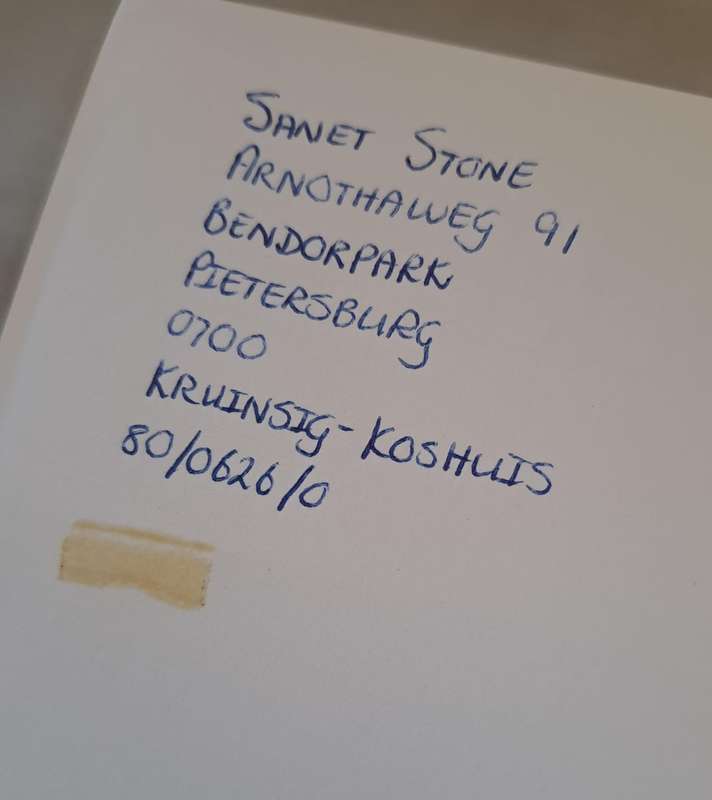 SANET STONE
ARNOTHAWEG 91
BENDORPARK
PIETERSBURG
0700
KRUINSIG-KOSHUIS
80/0626/0